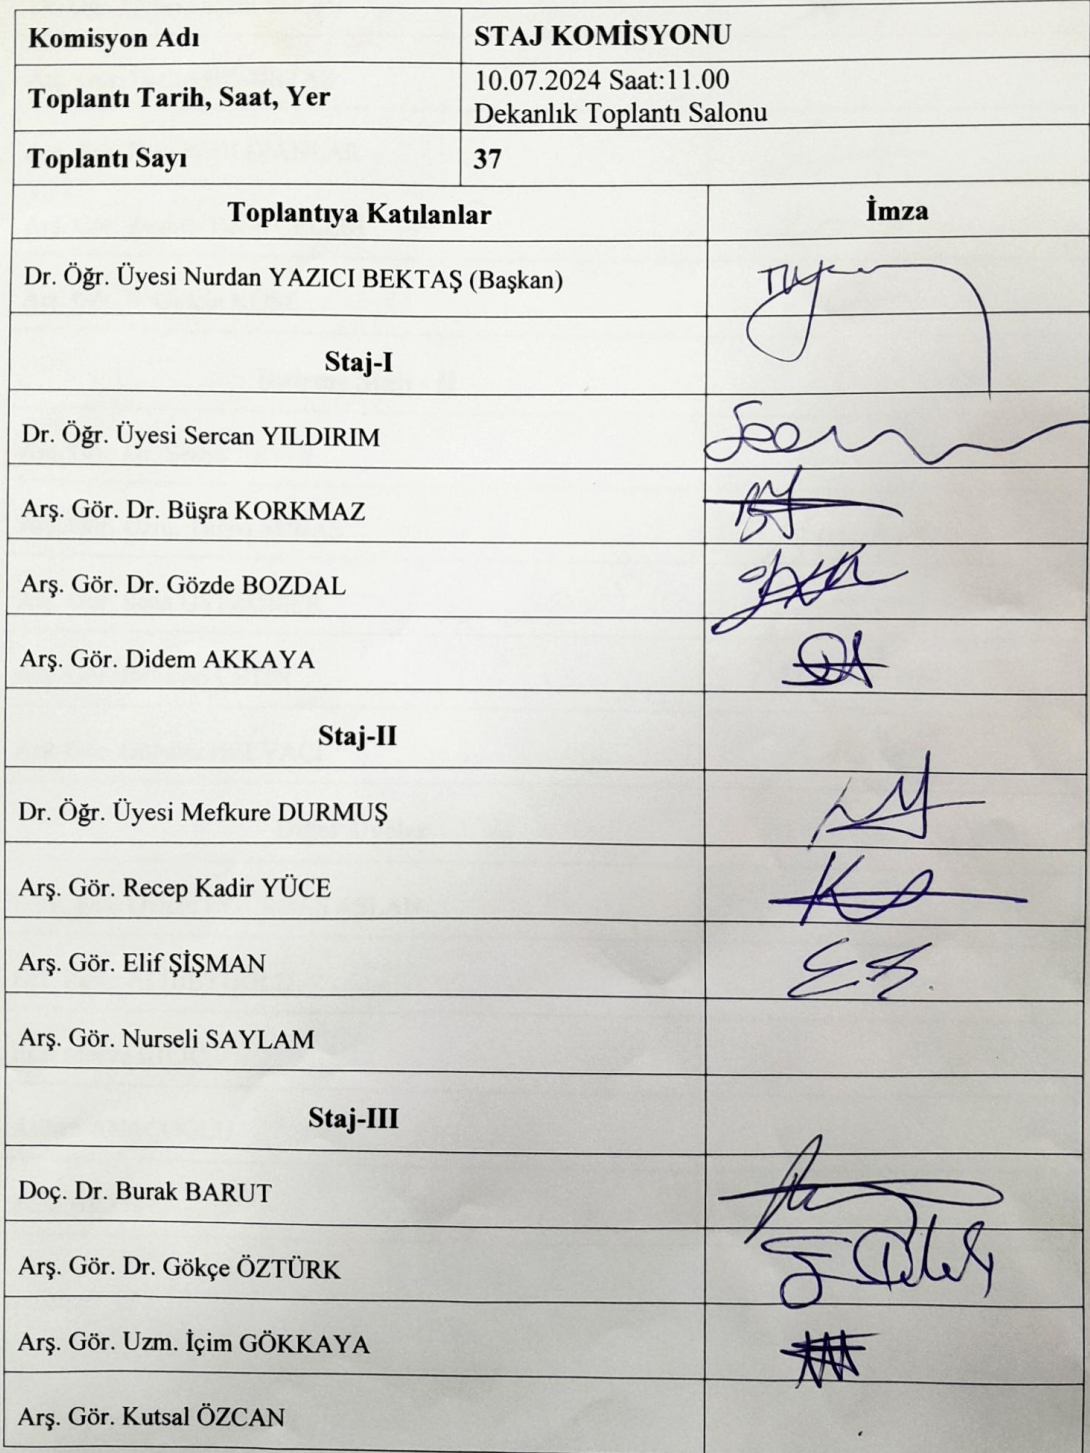 Komisyon Adı
STAJ KOMİSYONU
Toplantı Tarih, Saat, Yer
10.07.2024 Saat:11.00
Dekanlık Toplantı Salonu
Toplantı Sayı
37
Toplantıya Katılanlar
İmza
Dr. Öğr. Üyesi Nurdan YAZICI BEKTAŞ (Başkan)
Staj-I
Dr. Öğr. Üyesi Sercan YILDIRIM
Arş. Gör. Dr. Büşra KORKMAZ
Arş. Gör. Dr. Gözde BOZDAL
Arş. Gör. Didem AKKAYA
Staj-II
Dr. Öğr. Üyesi Mefkure DURMUŞ
Arş. Gör. Recep Kadir YÜCE
Arş. Gör. Elif ŞİŞMAN
Arş. Gör. Nurseli SAYLAM
Staj-III
Doç. Dr. Burak BARUT
Arş. Gör. Dr. Gökçe ÖZTÜRK
Arş. Gör. Uzm. İçim GÖKKAYA
Arş. Gör. Kutsal ÖZCAN